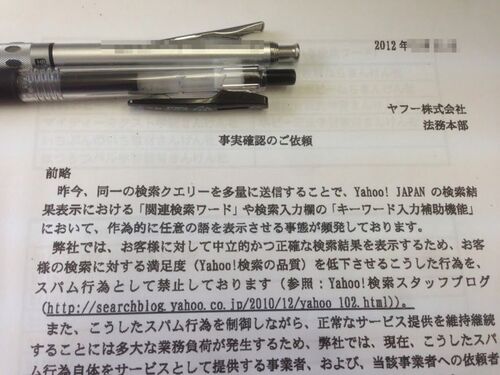 2012年
ヤフー株式会社
法務本部
事実確認のご依頼
前略
昨今、同一の検索クエリーを多量に送信することで、Yahoo! JAPAN の検索結
果表示における「関連検索ワード」や検索入力欄の「キーワード入力補助機能」
において、作為的に任意の語を表示させる事態が頻発しております。
弊社では、お客様に対して中立的かつ正確な検索結果を表示するため、お客
様の検索に対する満足度（Yahoo!検索の品質）を低下させるこうした行為を、
スパム行為として禁止しております（参照：Yahoo!検索スタッフブログ
(http://searchblog.yahoo.co.jp/2010/12/yahoo_102.html)）。
また、こうしたスパム行為を制御しながら、正常なサービス提供を維持継続
することには多大な業務負荷が発生するため、弊社では、現在、こうしたスパ
ム行為自体をサービスとして提供する事業者、および、当該事業者への依頼者